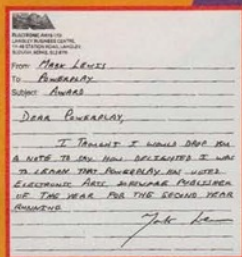 ELECTRONIC ARTS LTD
LANGLEY BUSINESS CENTRE,
11-49 STATION ROAD, LANGLEY,
From MARK LEWIS
To POWERPLAY
Subject AWARD
DEAR POWERPLAY,
I THOUGHT I WOULD DROP YOU
A NOTE TO SAY HOW DELIGHTED I WAS
TO LEARN THAT POWERPLAY HAS VOTED
ELECTRONIC ARTS SOFTWARE PUBLISHER
OF THE YEAR FOR THE SECOND YEAR
RUNNING